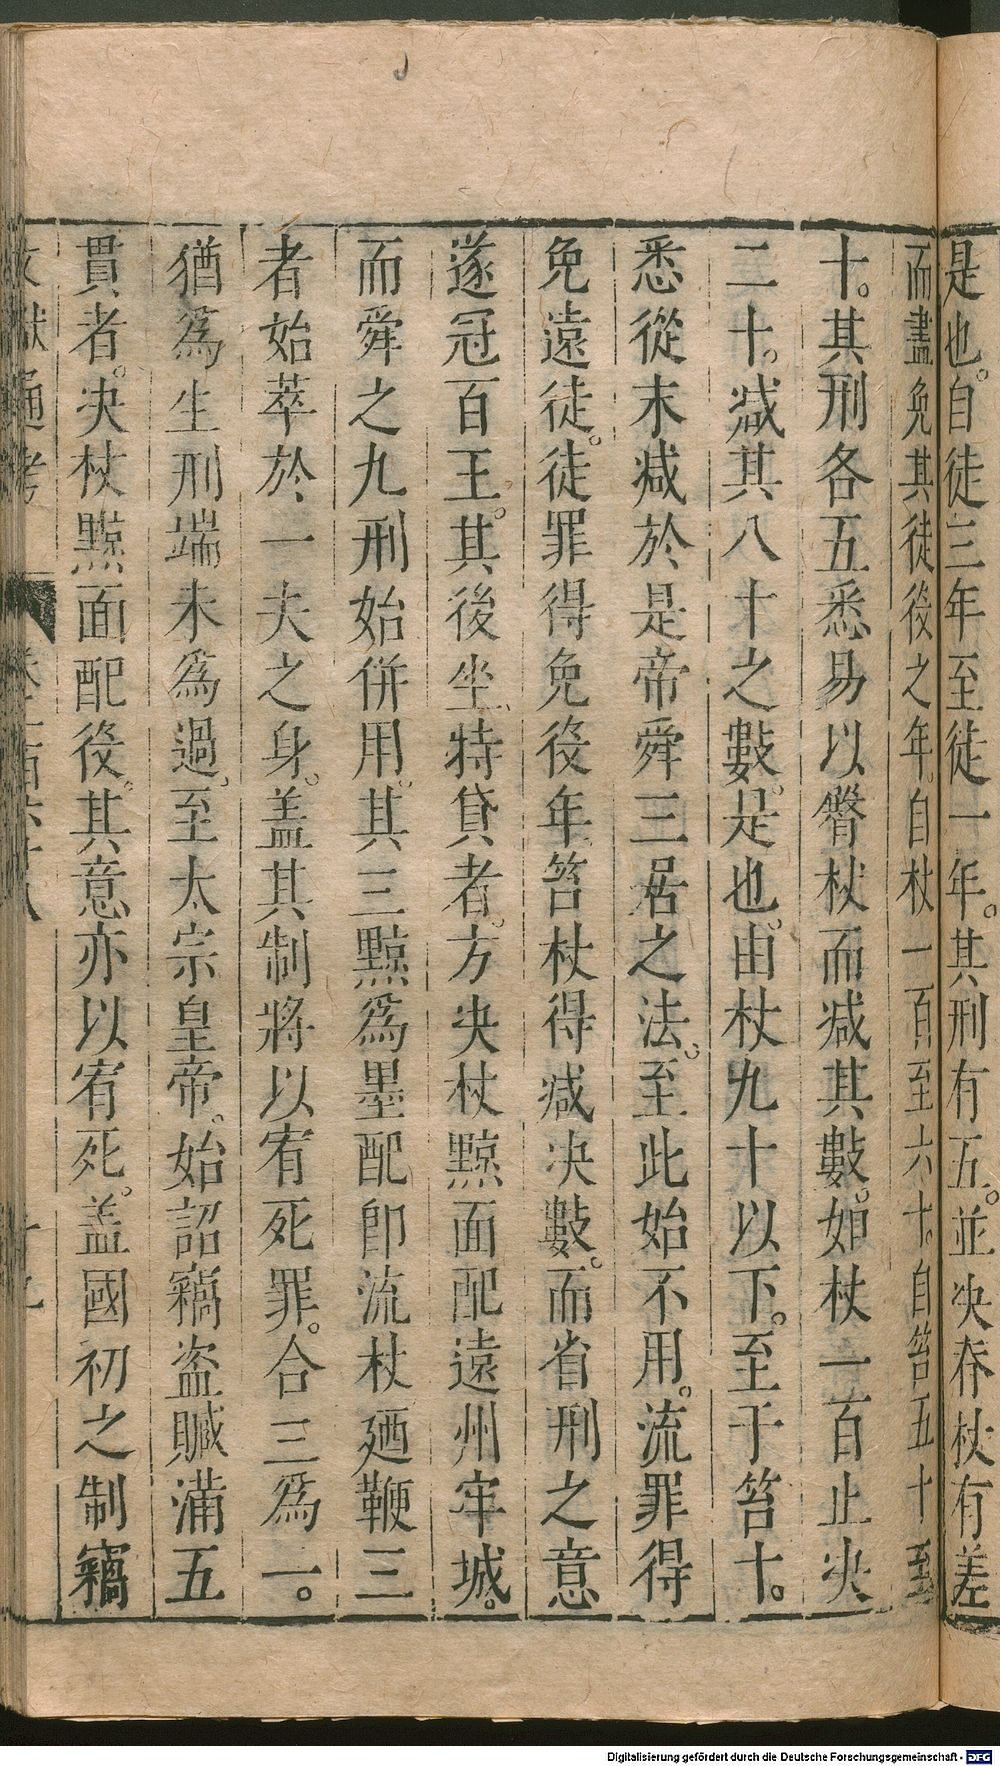 是也。自徒三年至徒一年。其刑有五。並决脊杖有差
而盡免其徒役之年。自杖一百至六十。自笞五十至
十。其刑各五悉易以臀杖而减其數。如杖一百止决
二十。减其八十之數。是也。由杖九十以下。至于笞十。
悉從末减於是帝舜三居之法。至此始不用。流罪得
免遠徒。徒罪得免役年笞杖得减决數。而省刑之意
遂冠百王。其後坐特貸者。方决杖黥面配遠州牢城。
而舜之九刑始併用。其三黥爲墨配卽流杖廼鞭三
者始萃於一夫之身。盖其制將以宥死罪。合三爲一。
猶爲生刑端未爲過。至太宗皇帝。始詔竊盗贓滿五
貫者。决杖黥面配役。其意亦以宥死。盖國初之制竊
文獻通考 卷一百六十八 十九
Digitalisierung gefördert durch die Deutsche Forschungsgemeinschaft - DFG